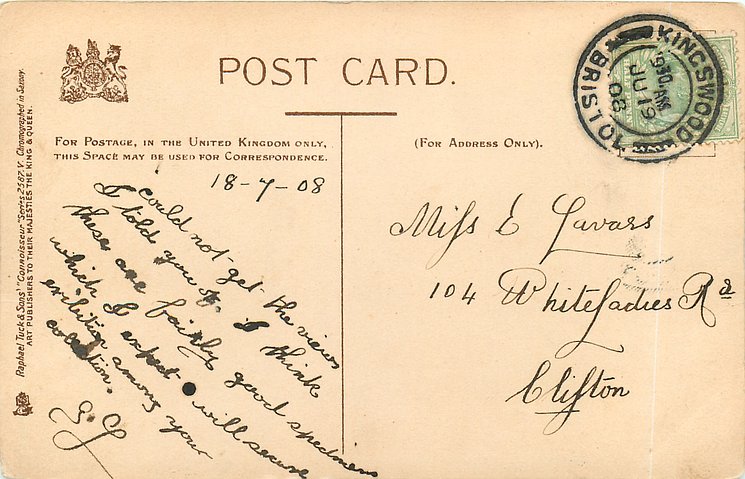 POST CARD.
FOR POSTAGE, IN THE UNITED KINGDOM ONLY,
THIS SPACE MAY BE USED FOR CORRESPONDENCE.
(FOR ADDRESS ONLY).
18-7-08
could not get the views
I told you of. I think
these are fairly good specimens
which I expect will secure
exibition among your
collection.
Miss E
104 Whiteladies Rd
Clifton
KINGSWOOD
BRISTOL
JU 19
08
Raphael Tuck & Sons' "Connoisseur" Series 2587. V. Chromographed in Saxony.
ART PUBLISHERS TO THEIR MAJESTIES THE KING & QUEEN.